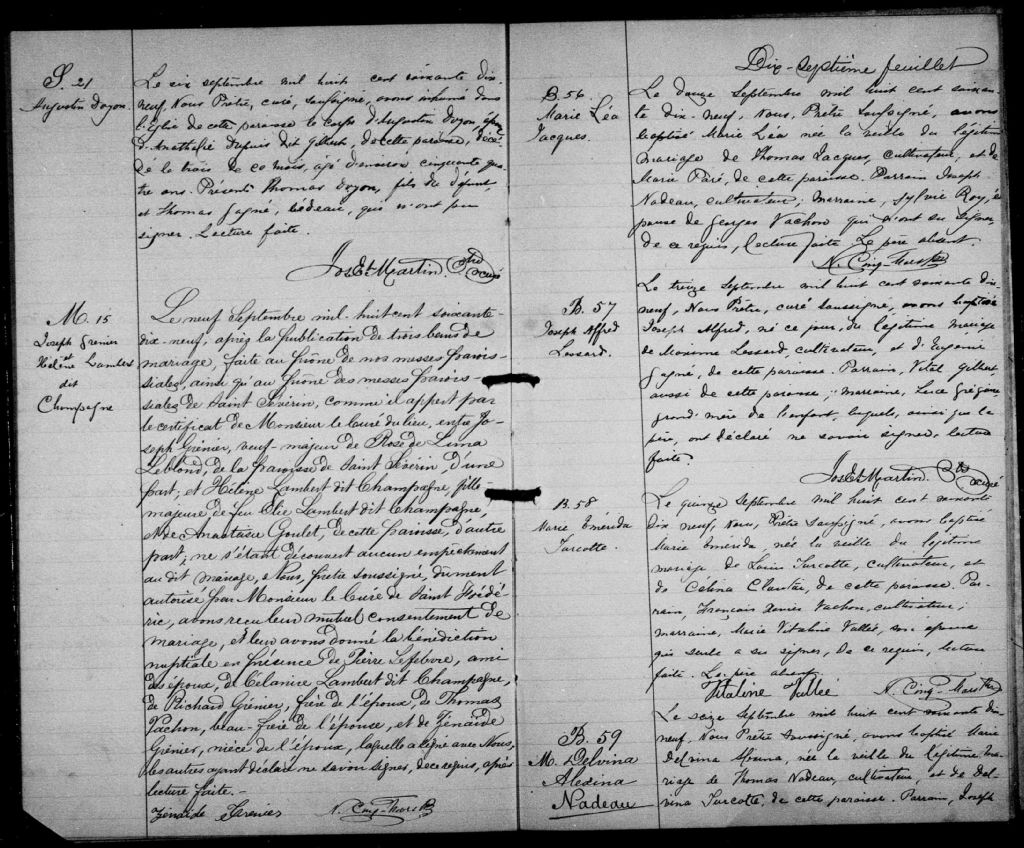 S. 21
Augustin Doyon
Le six septembre mil huit cent soixante dix-
neuf, Nous Prêtre, curé, soussigné, avons inhumé dans
l'Eglise de cette paroisse le corps d'Augustin Doyon, époux
d'Anathalie Dupuis dit Gilbert, de cette paroisse, décé-
dé le trois de ce mois, agé d'environ cinquante qua-
tre ans. Présents Thomas Doyon, fils du défunt
et Thomas Gagné, bédeau, qui n'ont pu
signer. Lecture faite.
Jos Et. Martin. Ptre Curé
M. 15
Joseph Grenier
et
Hélène Lambert
dit
Champagne
Le neuf Septembre mil-huit cent soixante-
dix-neuf, après la publication de trois bans de
mariage, faite au prône de nos messes parois-
siales, ainsi qu'au prône des messes parois-
siales de Saint Séverin, comme il appert par
le certificat de Monsieur le Curé du lieu, entre Jo-
seph Grénier, veuf-majeur de Rose de Lima
Leblond, de la paroisse de Saint Séverin, d'une
part; et Hélène Lambert dit Champagne, fille
majeure de feu Elie Lambert dit Champagne,
& de Anastasie Goulet, de cette paroisse, d'autre
part; ne s'étant découvert aucun empêchement
au dit mariage, Nous, prêtre soussigné, dûment
autorisé par Monsieur le Curé de Saint Frédé-
ric, avons reçu leur mutuel consentement de
mariage, et leur avons donné la bénédiction
nuptiale en présence de Pierre Lefebvre, ami
des époux, de Célanire Lambert dit Champagne,
de Richard Grénier, frère de l'époux, de Thomas
Vachon, beau-frère de l'épouse, et de Zénaïde
Grénier, nièce de l'époux, laquelle a signé avec Nous,
les autres ayant déclaré ne savoir signer, de ce requis, après
lecture faite.-
Zénaïde Grenier N. Cinq-Mars Ptre
Dix-septième feuillet
B. 56
Marie Léa
Jacques.
Le douze Septembre mil huit cent soixan-
te dix-neuf, Nous, Prêtre Soussigné, avons
baptisé Marie Léa née la veille du légitime
mariage de Thomas Jacques, cultivateur, et de
Marie Paré, de cette paroisse. Parrain Joseph
Nadeau, cultivateur; marraine, Sylvie Roy, é-
pouse de Georges Vachon qui n'ont su signer
de ce requis, lecture faite. Le père absent.
N. Cinq-Mars Ptre
B. 57
Joseph Alfred
Lessard.
Le treize Septembre mil huit cent soixante dix-
neuf, Nous Prêtre, curé soussigné, avons baptisé
Joseph Alfred, né ce jour, du légitime mariage
de Maxime Lessard, cultivateur, et d'Eugénie
Gagné, de cette paroisse. Parrain, Vital Gilbert,
aussi de cette paroisse; marraine, Luce Grégoire,
grand'mère de l'enfant, lesquels, ainsi que le
père, ont déclaré ne savoir signer, lecture
faite.
Jos Et. Martin. Ptre Curé
B. 58
Marie Emérida
Turcotte.
Le quinze Septembre mil huit cent soixante
dix neuf, Nous, Prêtre soussigné, avons baptisé
Marie Emérida née la veille du légitime
mariage de Louis Turcotte, cultivateur, et
de Célina Cloutier, de cette paroisse. Par-
rain, François Xavier Vachon, cultivateur;
marraine, Marie Vitaline Vallée, son épouse
qui seule a su signer, de ce requis, lecture
faite. Le père absent
Vitaline Vallée N. Cinq-Mars Ptre
B. 59
M. Delvina
Alexina
Nadeau
Le seize Septembre mil huit cent soixante dix-
neuf, Nous Prêtre soussigné, avons baptisé Marie
Delvina née la veille du légitime ma-
riage de Thomas Nadeau, cultivateur, et de Del-
vina Turcotte, de cette paroisse. Parrain, Joseph